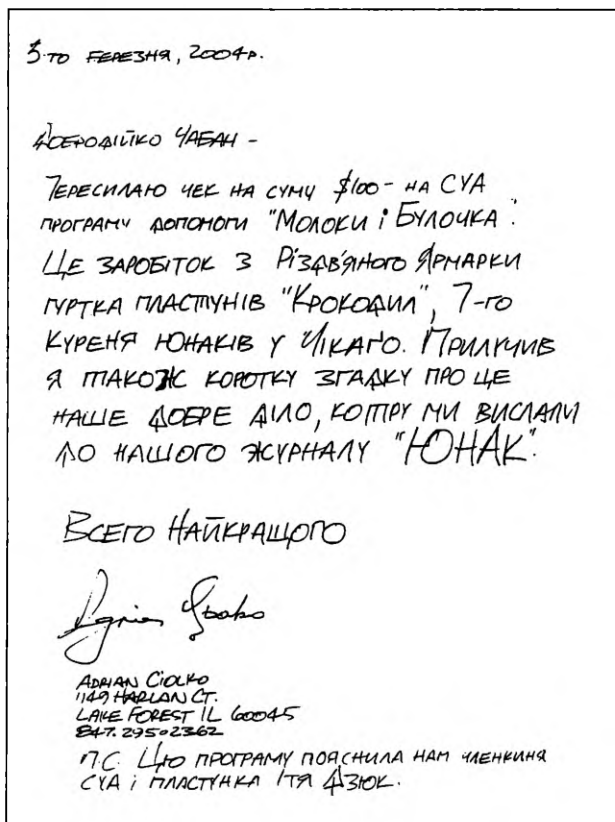 5-го БЕРЕЗНЯ, 2004р.
ДОБРОДІЙКО ЧАБАН -
ПЕРЕСИЛАЮ ЧЕК НА СУМУ $100- НА СУА
ПРОГРАМУ ДОПОМОГИ "МОЛОКИ і БУЛОЧКА".
ЦЕ ЗАРОБІТОК З РІЗДВ'ЯНОГО ЯРМАРКИ
ГУРТКА ПЛАСТУНІВ "КРОКОДИЛ", 7-го
КУРЕНЯ ЮНАКІВ У ЧІКАҐО. ПРИЛУЧИВ
Я ТАКОЖ КОРОТКУ ЗГАДКУ ПРО ЦЕ
НАШЕ ДОБРЕ ДІЛО, КОТРУ МИ ВИСЛАЛИ
ДО НАШОГО ЖУРНАЛУ "ЮНАК".
ВСЕГО НАЙКРАЩОГО
ADRIAN CIOLKO
1149 HARLAN CT.
LAKE FOREST IL 60045
847.295-2362
П.С. ЦЮ ПРОГРАМУ ПОЯСНИЛА НАМ ЧЛЕНКИНЯ
СУА і ПЛАСТУНКА ІТЯ ДЗЮК.